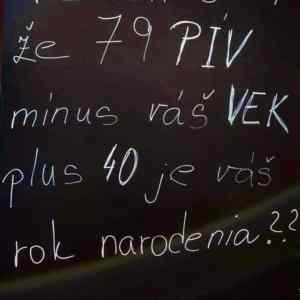 že 79 PÍV
mínus váš VEK
plus 40 je váš
rok narodenia??